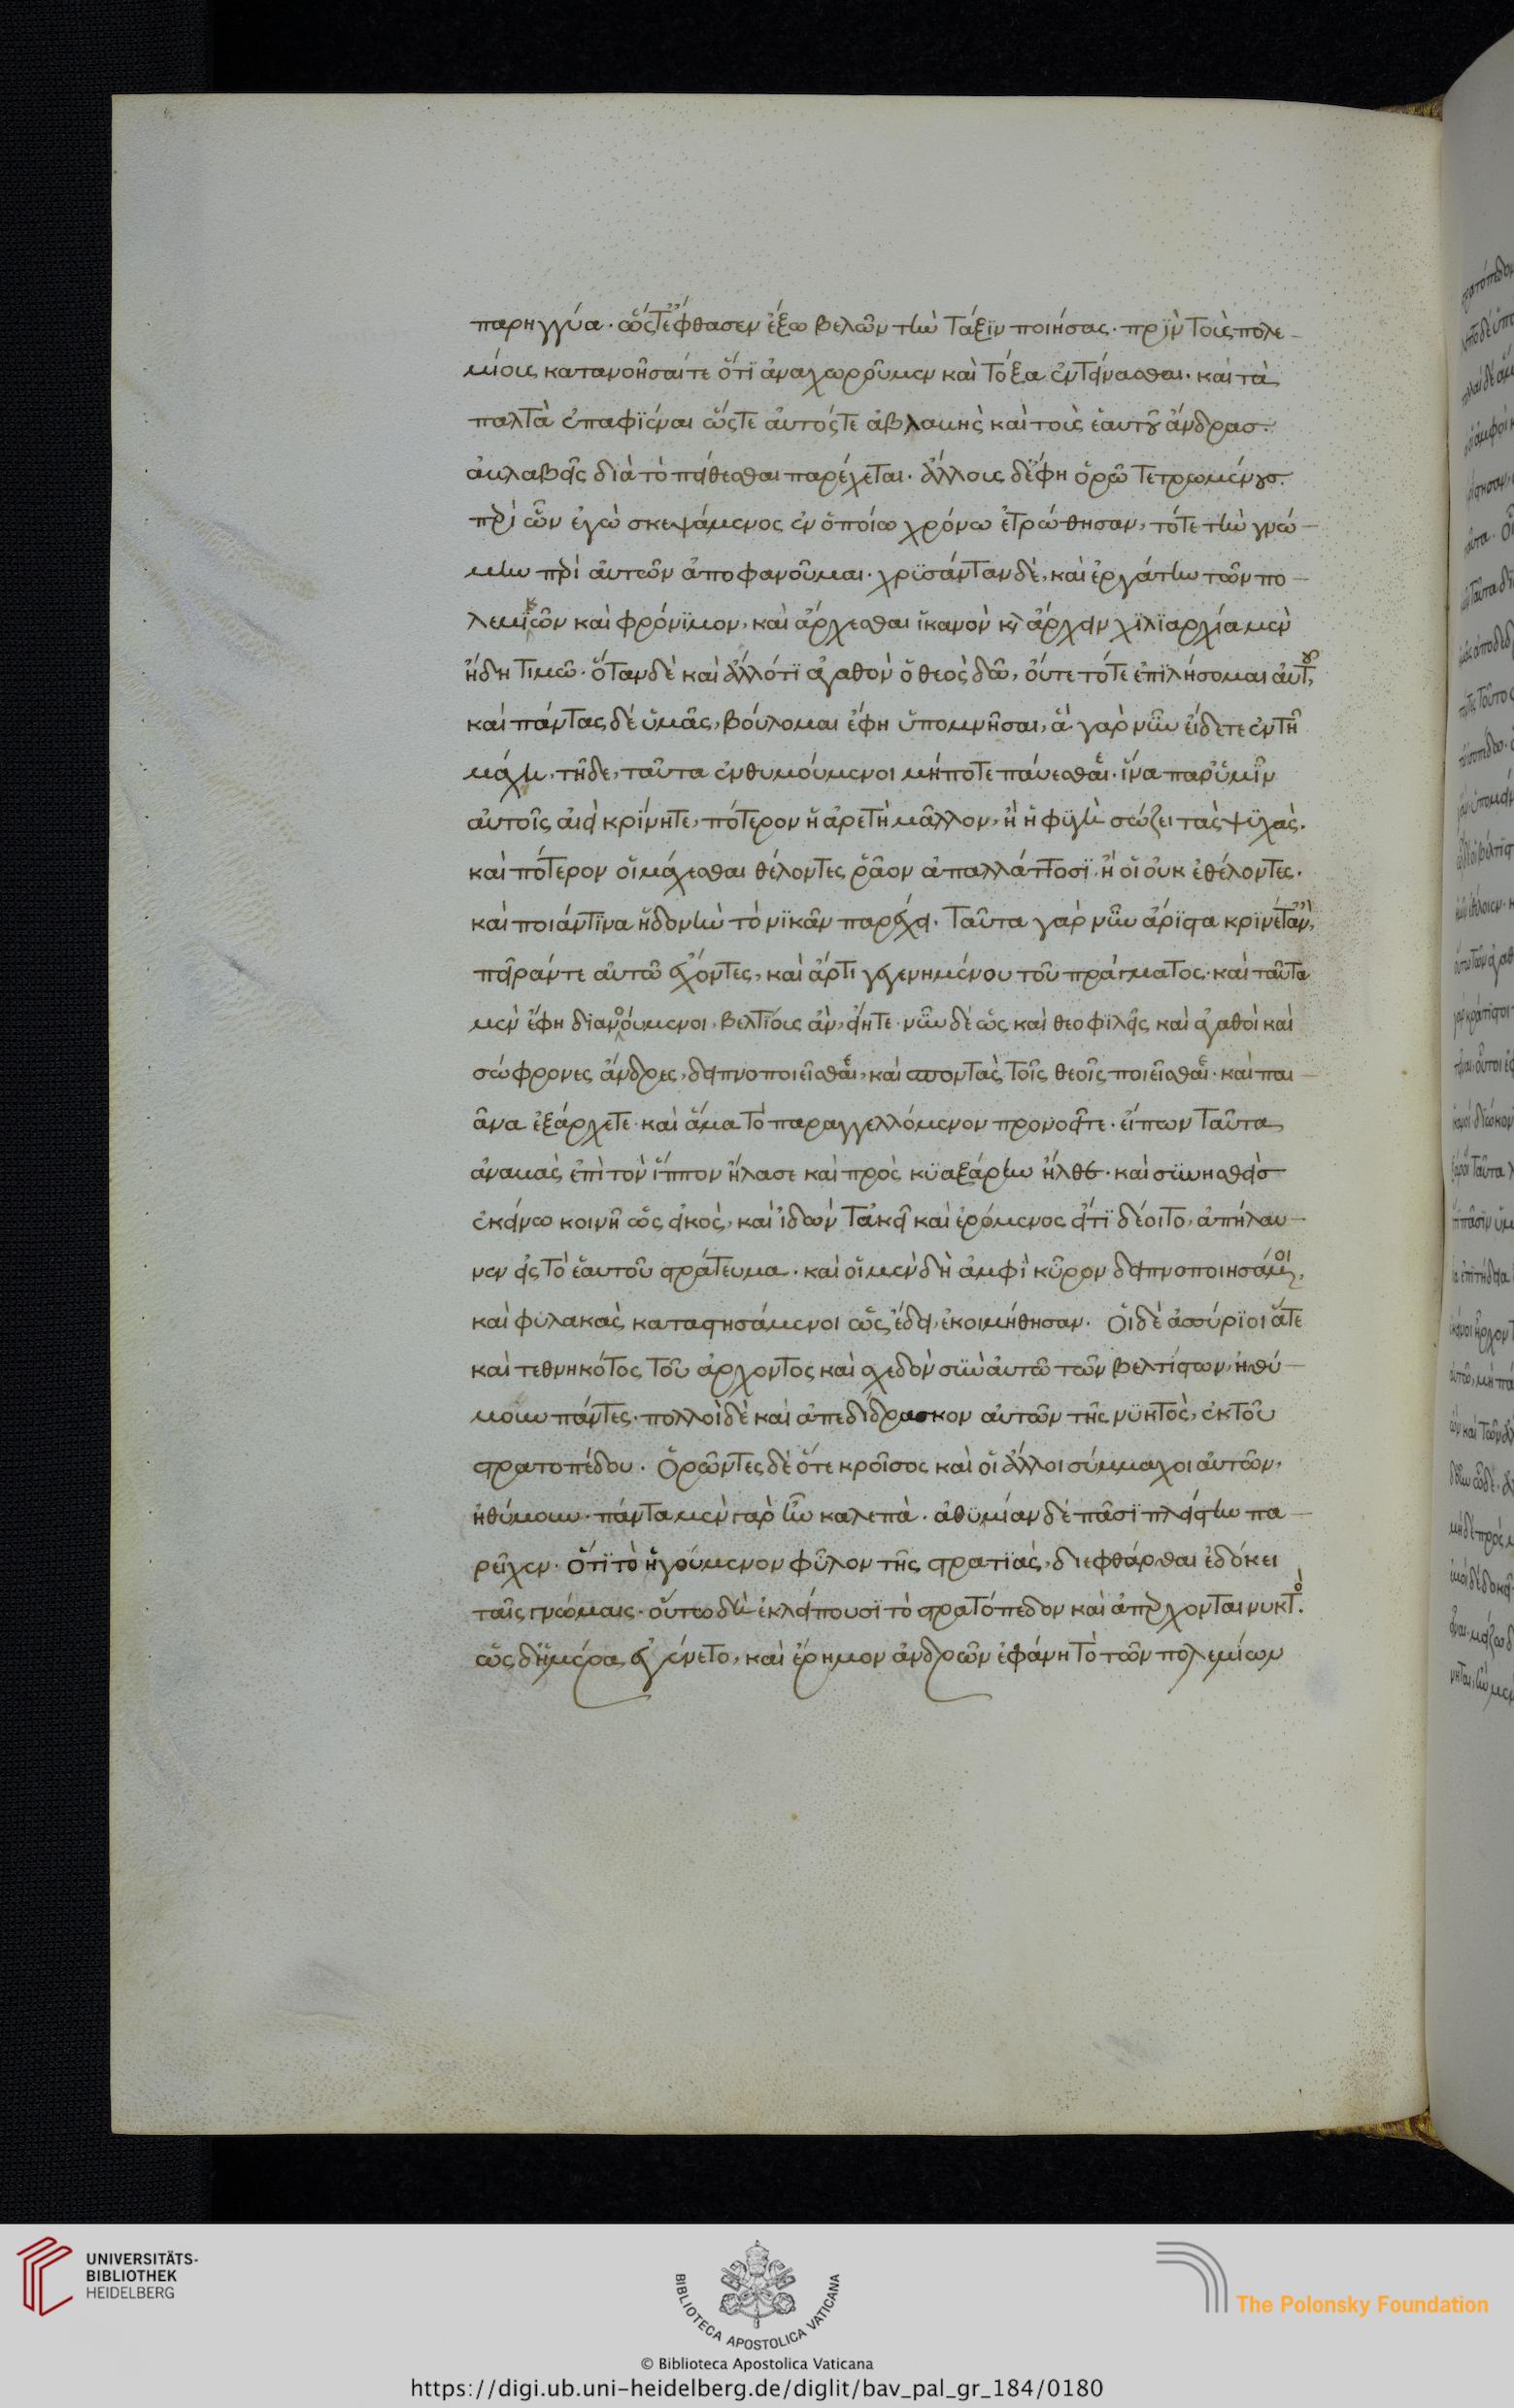 παρηγγύα· ὥςτ' ἔφθασεν ἔξω βελῶν τὴν τάξϊν ποιήσας· πρϊν τοὺς πολε-
μίους κατανοῆσαίτε ὅτϊ ἀναχωροῦμεν καὶ τόξα ἐντείνασθαι· καὶ τὰ
παλτὰ ἐπαφϊέναι ὥςτε ἀυτόςτε ἀβλαμὴς καὶ τοὺς ἑαυτοῦ ἄνδρασ
ἀκλαβεῖς διὰ τὸ πείθεσθαι παρέχεται· ἄλλους δ' ἔφη ὁρῶ τετρωμένουσ·
περὶ ὧν ἐγὼ σκεψάμενος ἐν ὁποίω χρόνω ἐτρώθησαν, τότε τὴν γνώ-
μην περὶ ἀυτῶν ἀποφανοῦμαι· χρϊσάνταν δὲ, καὶ ἐργάτην τῶν πο-
λεμικῶν καὶ φρόνϊμον, καὶ ἄρχεσθαι ἱκανὸν καὶ ἄρχειν χϊλϊαρχία μὲν
ἤδη τιμῶ· ὅταν δὲ καὶ ἄλλότϊ ἀγαθὸν ὁ θεὸς δῶ, ὄυτε τότε ἐπϊλήσομαι ἀυτοῦ,
καὶ πάντας δὲ ὑμᾶς, βούλομαι ἔφη ὑπομνῆσαι, ἃ γὰρ νῦν εἴδετε ἐν τῆ
μάχη, τῆδε, ταῦτα ἐνθυμούμενοι μήποτε πάυεσθαι· ἵνα παρ' ὑμῖν
αὐτοῖς ἀιεὶ κρίνητε, πότερον ἡ ἀρετὴ μᾶλλον, ἢ ἡ φϋγὴ σώζει τὰς ψϋχὰς·
καὶ πότερον οἱ μάχεσθαι θέλοντες ῥᾶον ἀπαλλάττοσϊ, ἢ οἱ οὐκ ἐθέλοντες·
καὶ ποιάντϊνα ἡδονὴν τὸ νϊκᾶν παρέχει· ταῦτα γὰρ νῦν ἄρϊστα κρϊνεῖτ' ἂν,
πεῖράντε αὐτῶ ἔχοντες, καὶ ἄρτι γεγενημένου τοῦ πράγματος· καὶ ταῦτα
μὲν ἔφη δϊανοούμενοι, βελτίους ἂν, εἴητε· νῦν δὲ ὡς καὶ θεοφϊλεῖς καὶ ἀγαθοὶ καὶ
σώφρονες ἄνδρες, δειπνοποιεῖσθαι, καὶ σπονδὰς τοῖς θεοῖς ποιεῖσθαι· καὶ παι-
ᾶνα ἐξάρχετε· καὶ ἅμα τὸ παραγγελλόμενον προνοεῖτε· εἴπων ταῦτα
ἀναμὰς ἐπὶ τὸν ἵππον ἤλασε καὶ πρὸς κϋαξάρην ἦλθε· καὶ σϋνησθεὶσ
ἐκείνω κοινῆ ὡς εἰκὸς, καὶ ἰδὼν τἀκεῖ καὶ ἐρόμενος εἴτϊ δέοιτο, ἀπήλαυ-
νεν εἰς τὸ ἑαυτοῦ στράτευμα· καὶ οἱ μὲν δὴ ἀμφὶ κῦρον δειπνοποιησάμενοι,
καὶ φυλακὰς καταστησάμενοι ὡς ἔδει, ἐκοιμήθησαν· Οἱ δὲ ἀσσύρϊοι ἅτε
καὶ τεθνηκότος τοῦ ἄρχοντος καὶ σχεδὸν σϋν ἀυτῶ τῶν βελτίστων, ἠθύ-
μουν πάντες· πολλοὶ δὲ καὶ ἀπεδίδρασκον αὐτῶν τῆς νϋκτὸς, ἐκ τοῦ
στρατοπέδου· Ὁρῶντες δὲ ὅτε κροῖσος καὶ οἱ ἄλλοι σύμμαχοι ἀυτῶν,
ἠθύμουν· πάντα μὲν γὰρ ἦν καλεπὰ· ἀθϋμίαν δὲ πᾶσϊ πλείστην πα-
ρεῖχεν· ὅτϊ τὸ ἡγούμενον φῦλον τῆς στρατϊᾶς, διεφθάρθαι ἐδόκει
ταῖς γνώμαις· οὕτω δὴ ἐκλείπουσϊ τὸ στρατόπεδον καὶ ἀπέρχονται νυκτὸς·
ὡς δ' ἡμέρα ἐγένετο, καὶ ἔρημον ἀνδρῶν ἐφάνη τὸ τῶν πολεμίων
UNIVERSITÄTS-
BIBLIOTHEK
HEIDELBERG
BIBLIOTECA APOSTOLICA VATICANA
The Polonsky Foundation
© Biblioteca Apostolica Vaticana
https://digi.ub.uni-heidelberg.de/diglit/bav_pal_gr_184/0180